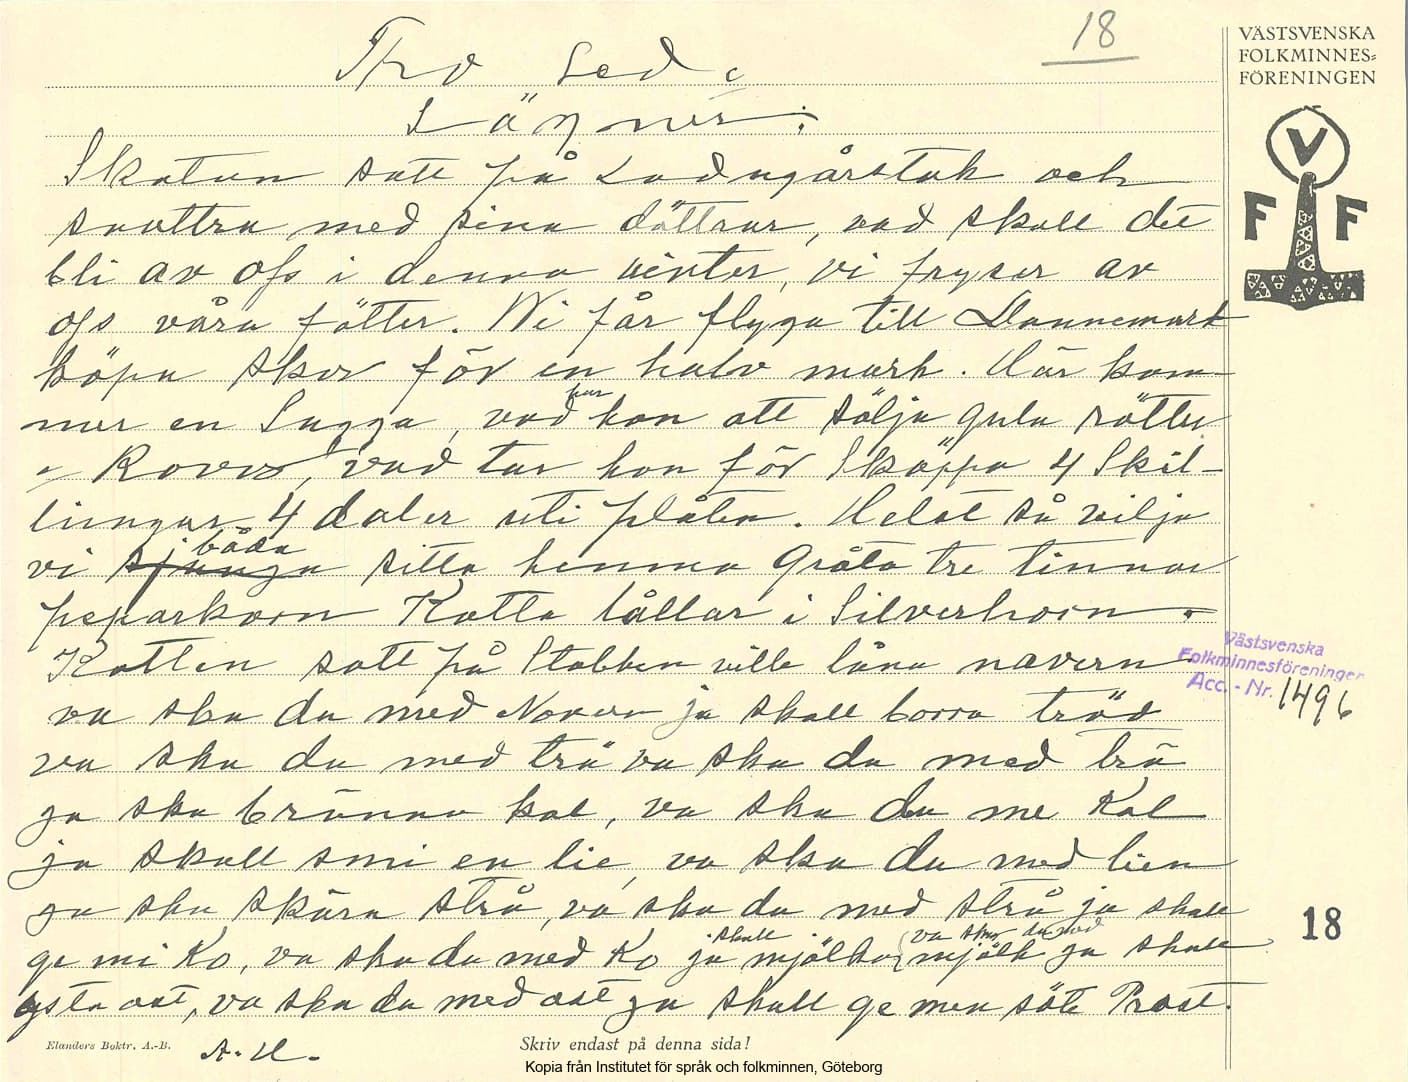 18
Tro Sed o
Lägner:
Skatan satt på Ladugårstak och
snattra med sina döttrar, vad skall det
bli av ofs i denna vinter, vi fryser av
ofs våra fötter. Wi får flyga till Dannemark
köpa skor för en halv mark. Där kom-
mer en Sugga, vad har hon att sälja gula rötter
o Rovor, vad tar hon för Skäppa 4 Skil-
lingar 4 daler uti plåten. Helst så vilja
vi sjunga båda sitta hemma Gråta tre tinnor
peparkorn Kalla lållar i Silverhorn.
Katten satt på Stabben ville låna navern
va ska du med Naver ja skall borra träd
va ska du med trä va ska du med trä
ja ska bränna kol, va ska du me Kol
ja skall smi en lie, va ska du med lien
ja ska skära strå, va ska du med strå ja skall
ge mi Ko, va ska du med Ko ja skall mjölka, va ska du med mjölk ja skall
ysta ost, va ska du med ost ja skall ge men söte Prost.
A. H.
Elanders Boktr. A.-B.
Skriv endast på denna sida!
Kopia från Institutet för språk och folkminnen, Göteborg
VÄSTSVENSKA
FOLKMINNES-
FÖRENINGEN
V
F F
Västsvenska
Folkminnesföreningen
Acc. - Nr. 1496
18